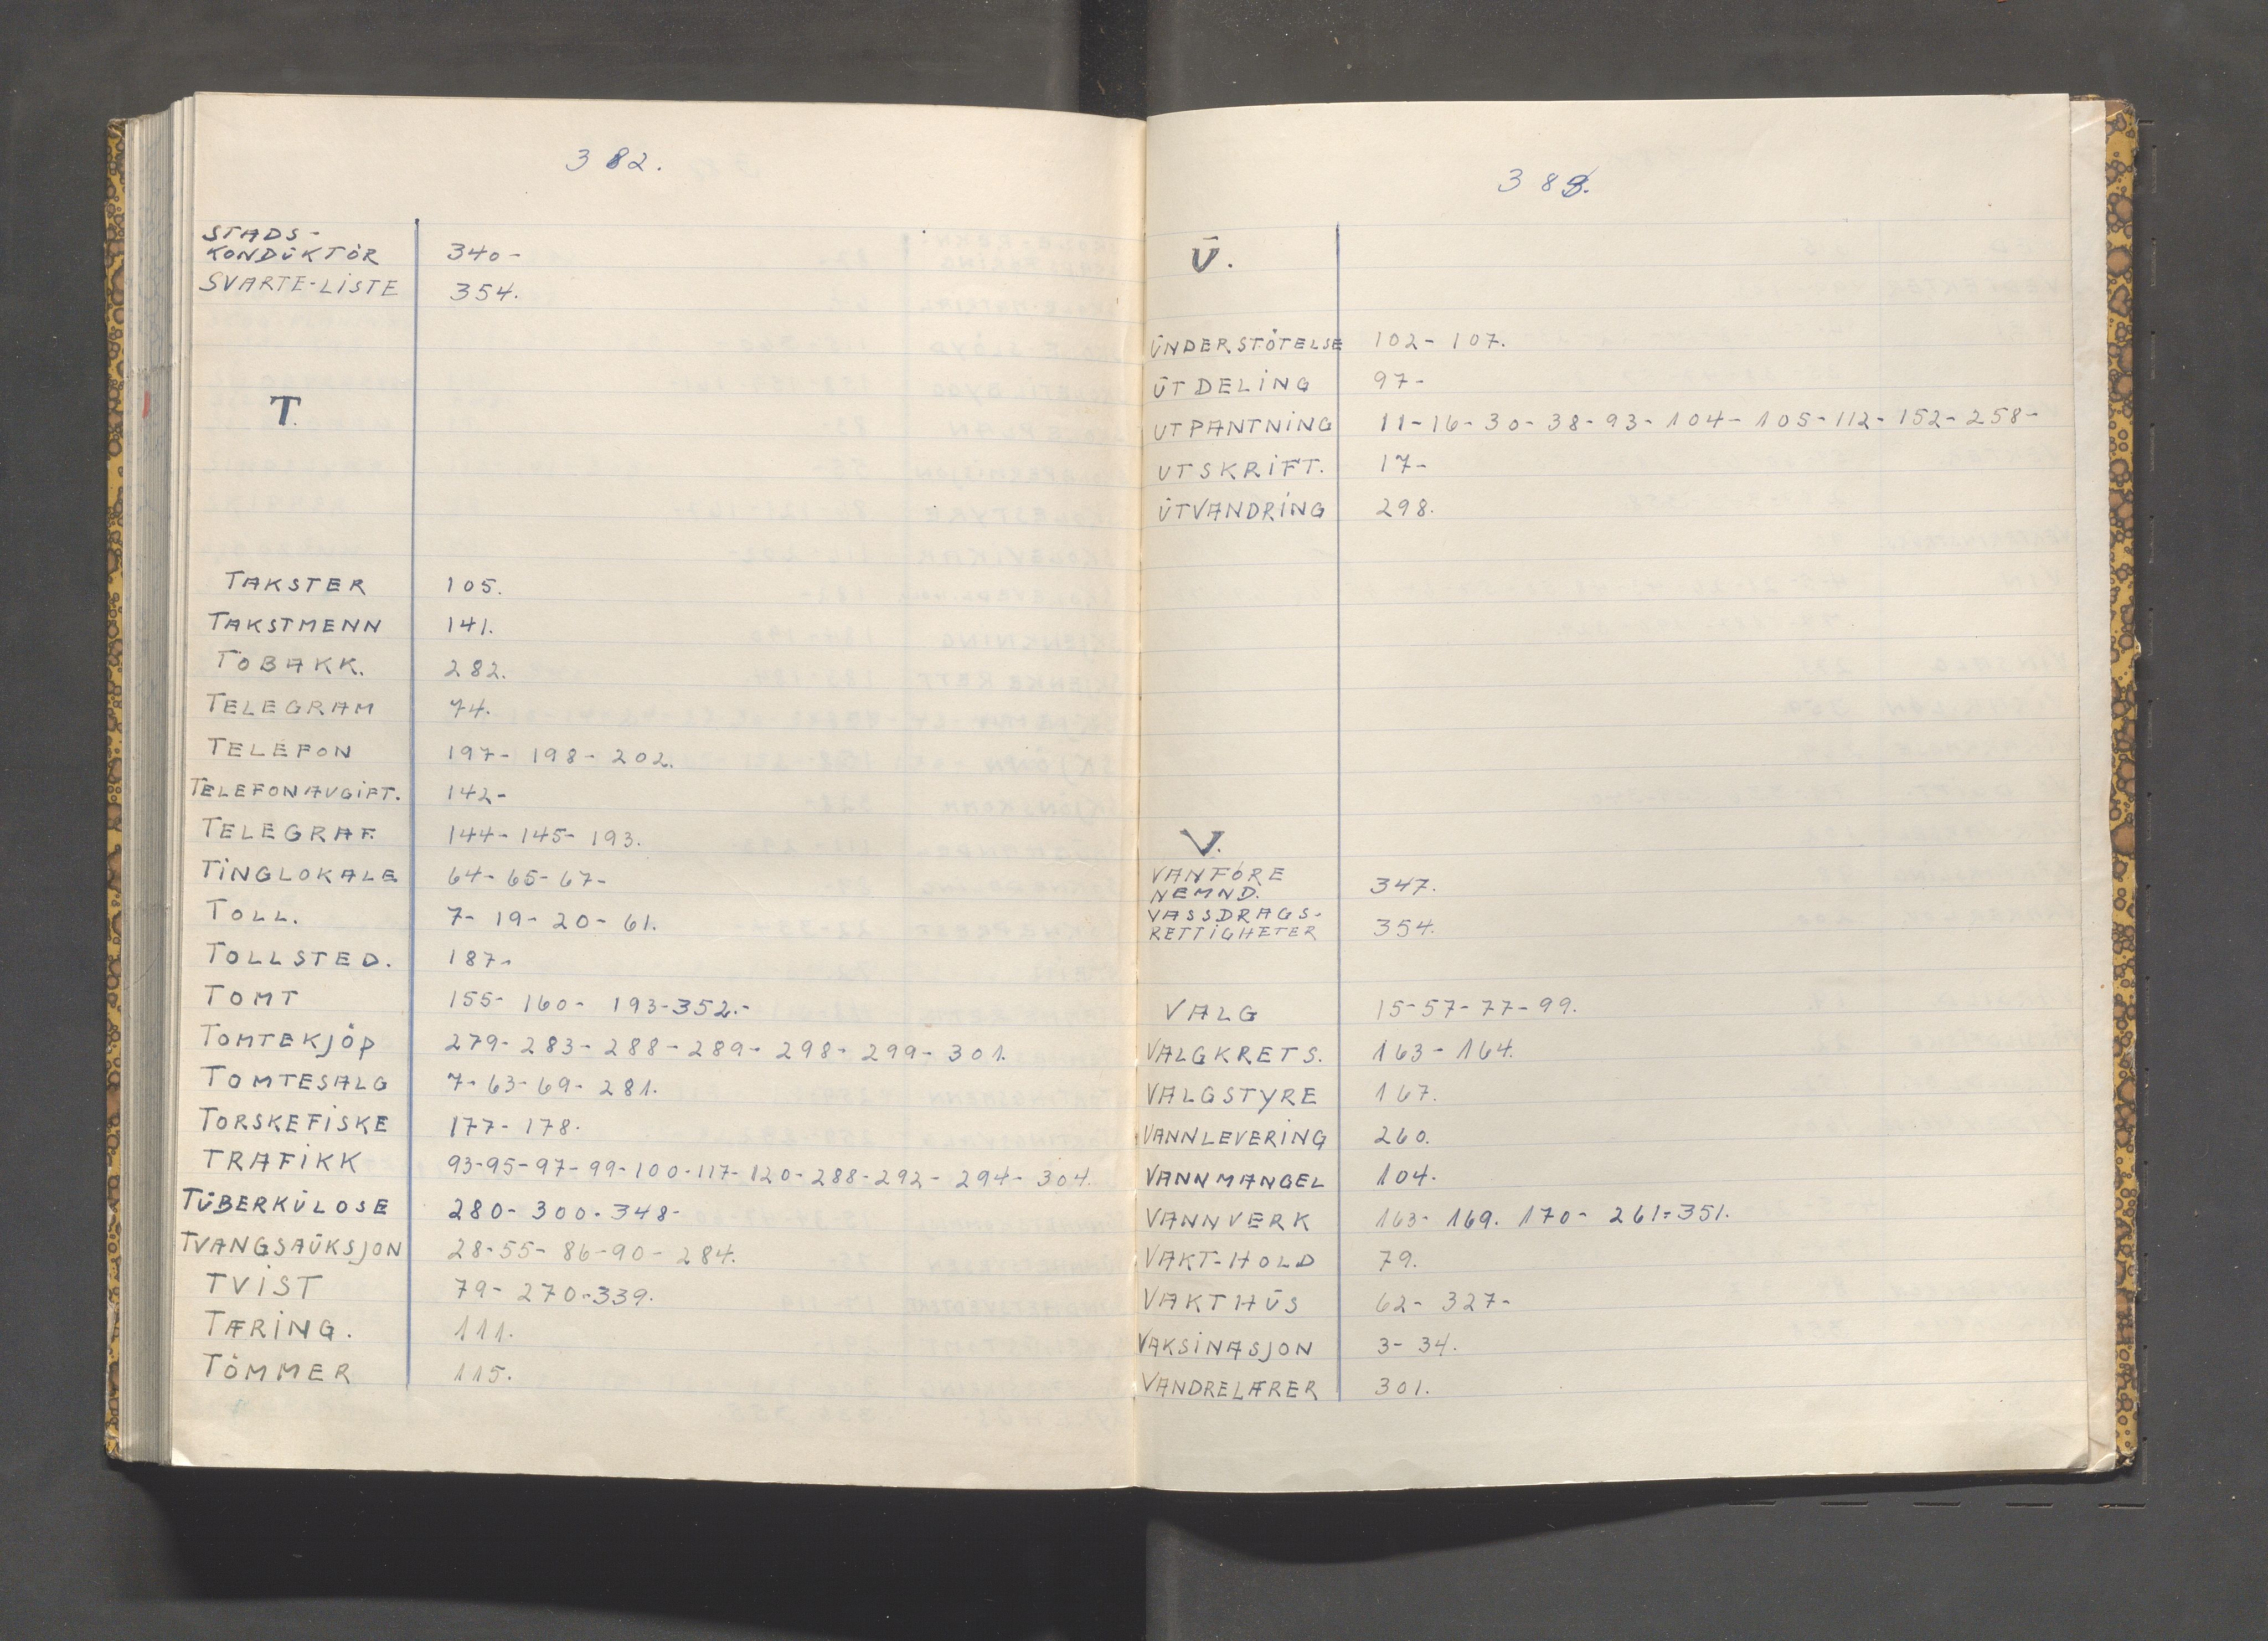 382.
STADS-
KONDŪKTÖR 340-
SVARTE-LISTE 354.
T.
TAKSTER 105.
TAKSTMENN 141.
TOBAKK. 282.
TELEGRAM 74.
TELEFON 197- 198- 202.
TELEFONAVGIFT. 142-
TELEGRAF. 144- 145- 193.
TINGLOKALE 64- 65- 67-
TOLL. 7- 19- 20- 61.
TOLLSTED. 187-
TOMT 155- 160- 193-352.-
TOMTEKJÖP 279- 283- 288- 289- 298- 299- 301.
TOMTESALG 7- 63- 69- 281.
TORSKEFISKE 177- 178.
TRAFIKK 93-95-97-99-100-117-120-288-292- 294- 304.
TŪBERKŪLOSE 280- 300- 348-
TVANGSAŪKSJON 28-55- 86-90- 284.
TVIST 79- 270-339.
TÆRING. 111.
TÖMMER 115.
Ū.
ŪNDERSTÖTELSE 102- 107.
ŪTDELING 97-
UTPANTNING 11-16-30-38-93-104-105-112-152-258-
UTSKRIFT. 17-
ŪTVANDRING 298.
V.
VANFÖRE
NEMND. 347.
VASSDRAGS-
RETTIGHETER 354.
VALG 15-57-77-99.
VALGKRETS. 163- 164.
VALGSTYRE 167.
VANNLEVERING 260.
VANNMANGEL 104.
VANNVERK 163- 169. 170- 261-351.
VAKT-HOLD 79.
VAKTHŪS 62- 327-
VAKSINASJON 3- 34.
VANDRELÆRER 301.